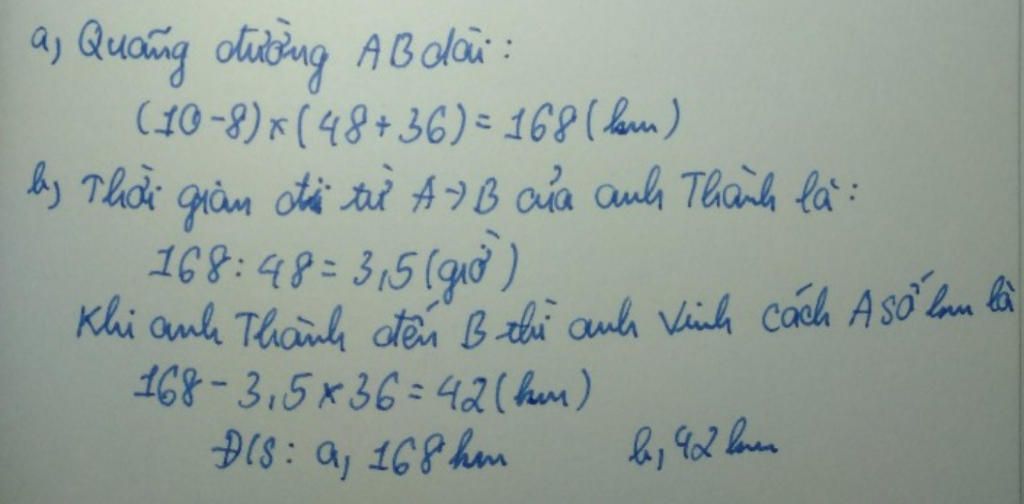 a, Quãng đường AB dài:
(10-8)×(48+36)=168(km)
b, Thời gian đi từ A→B của anh Thành là:
168:48=3,5(giờ)
Khi anh Thành đến B thì anh Vinh cách A số km là
168-3,5×36=42(km)
Đ/S: a, 168km b, 42km